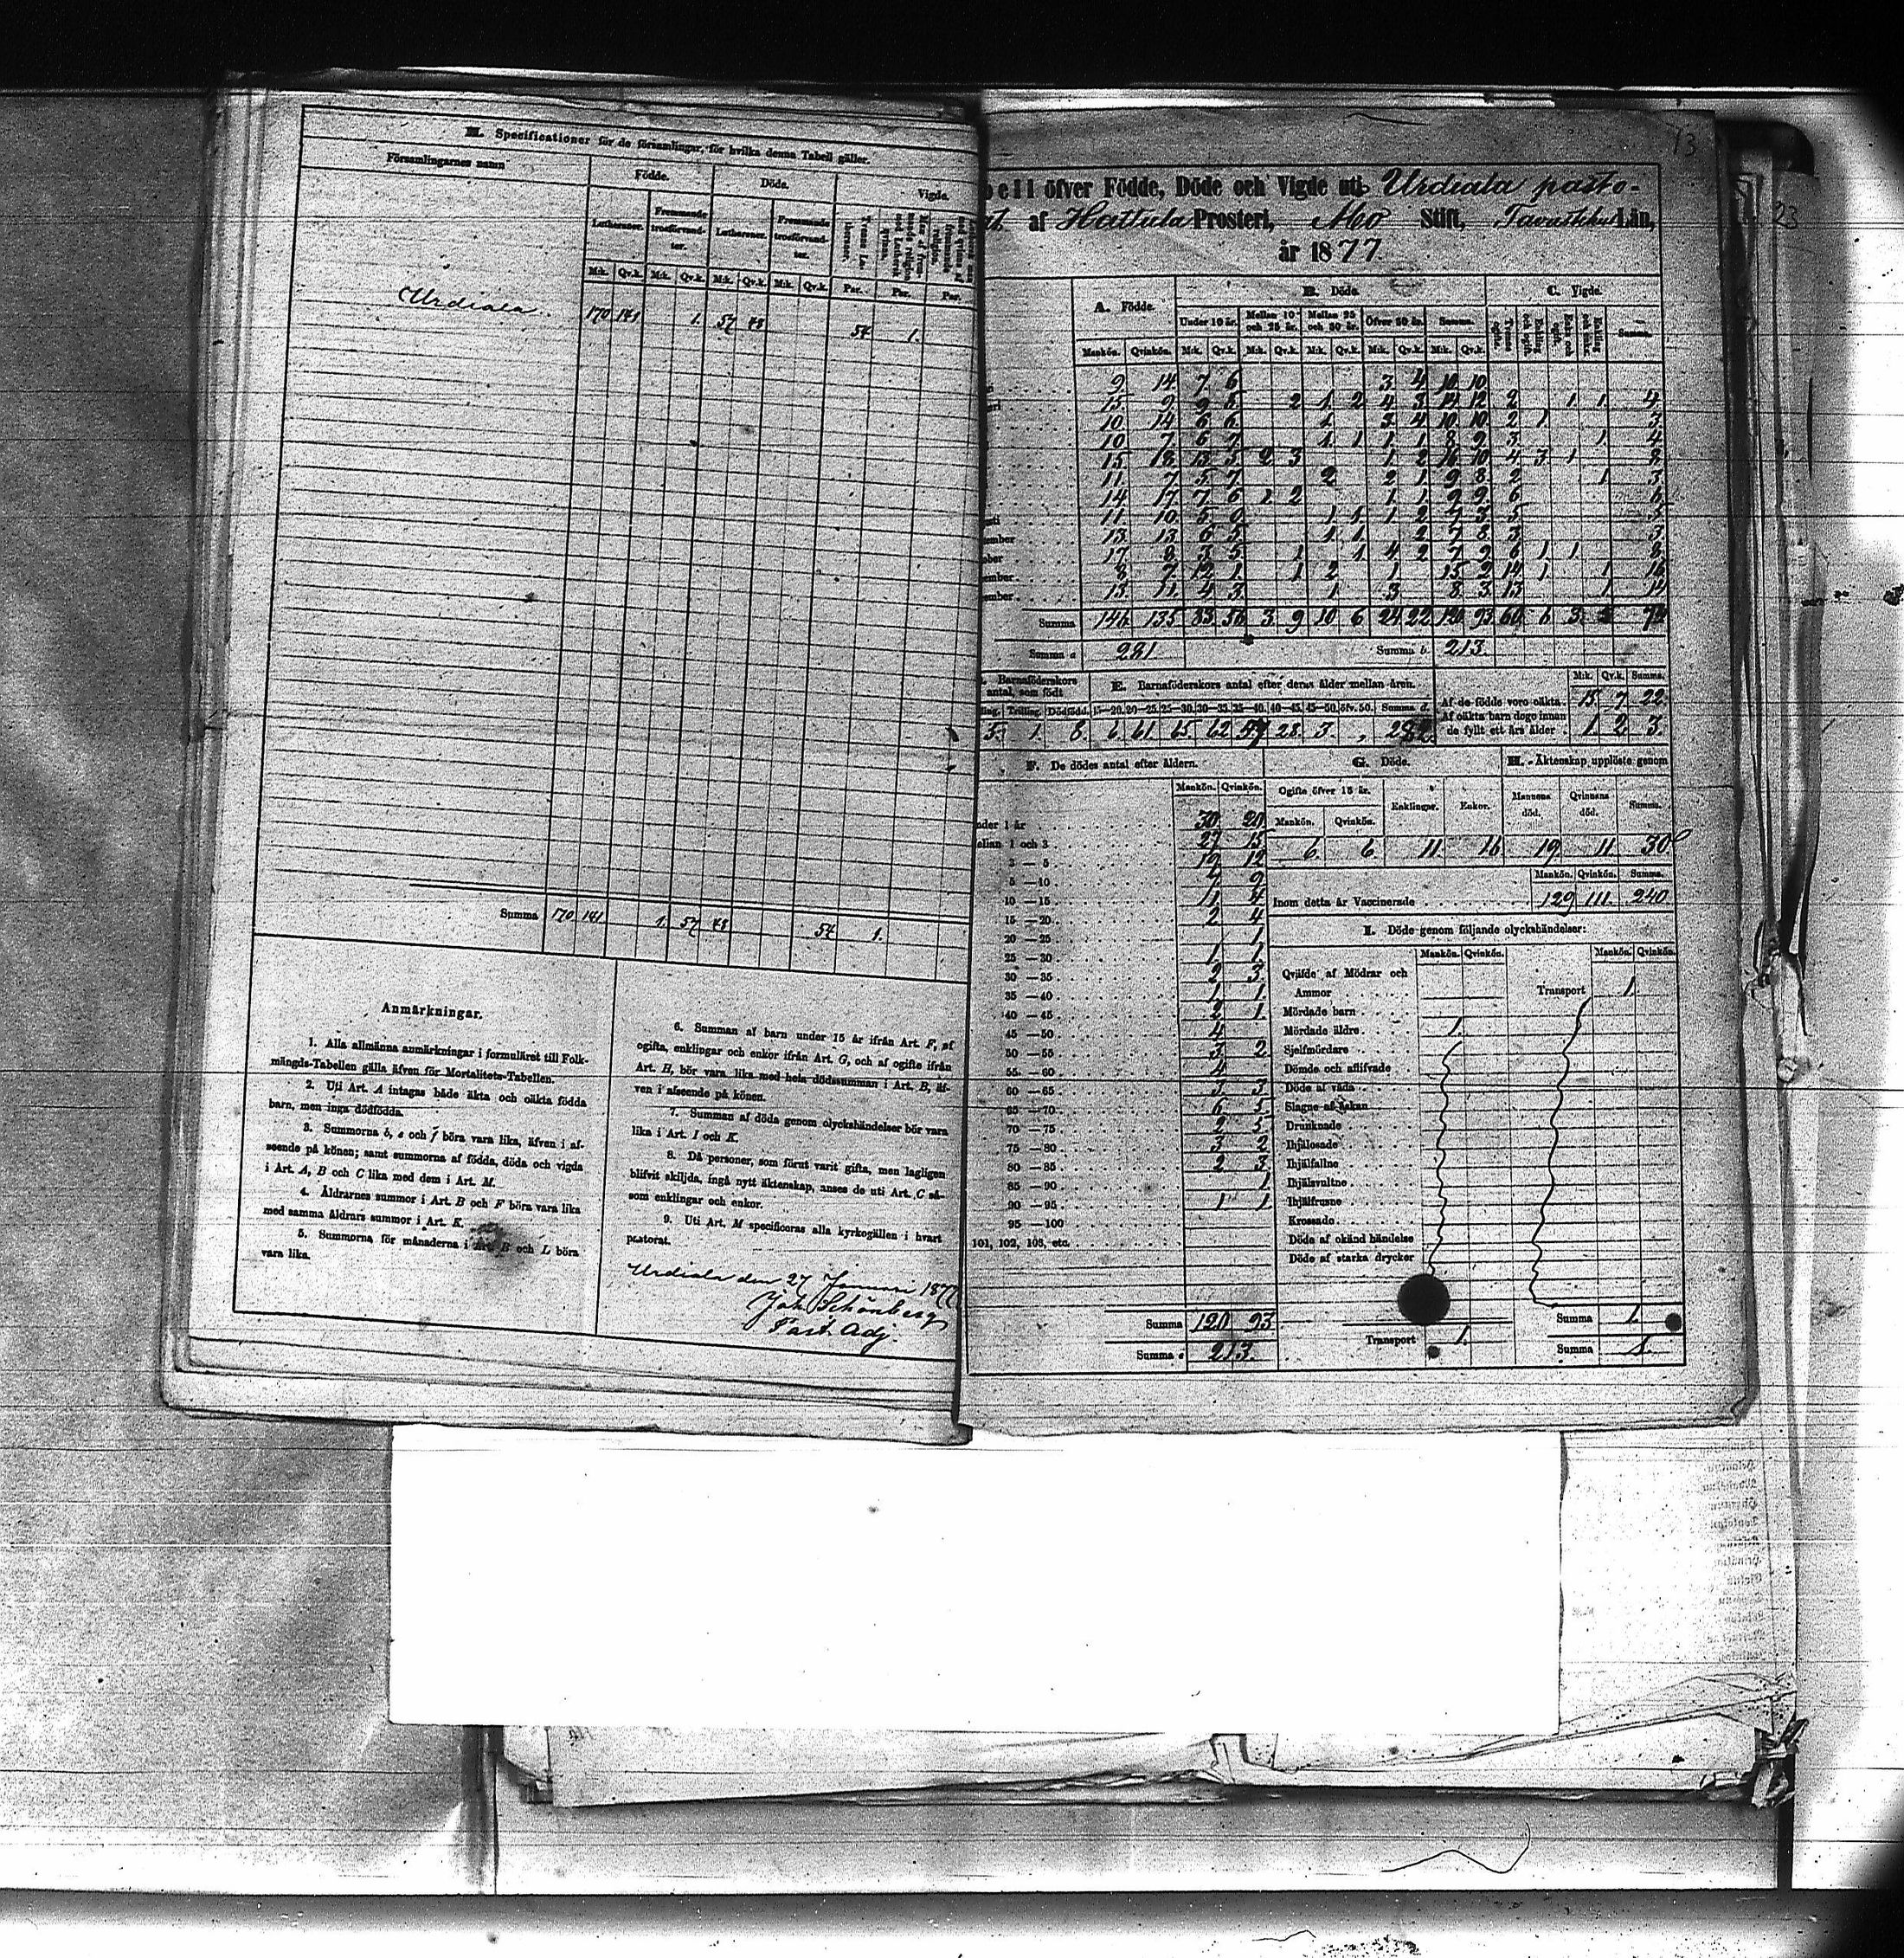 M. Specificationer för de församlingar, för hvilka denna Tabell gäller.
Församlingarnes namn
Födde. Döde. Vigde.
Lutheraner. Fremmande trosförvandter. Lutheraner. Fremmande trosförvandter.
M.k. Qv.k. M.k. Qv.k. M.k. Qv.k. M.k. Qv.k. Par. Par. Par.
Urdiala 170 141 1. 57 48 54 1.
Summa 170 141 1. 57 48 54 1.
Anmärkningar.
1. Alla allmänna anmärkningar i formuläret till Folk-
mängds-Tabellen gälla äfven för Mortalitets-Tabellen.
2. Uti Art. A intagas både äkta och oäkta födda
barn, men inga dödfödda.
3. Summorna b, e och f böra vara lika, äfven i af-
seende på könen; samt summorna af födda, döda och vigda
i Art. A, B och C lika med dem i Art. M.
4. Åldrarnes summor i Art. B och F böra vara lika
med samma åldrars summor i Art. K.
5. Summorna för månaderna i Art. B och L böra
vara lika.
6. Summan af barn under 15 år ifrån Art. F, af
ogifta, enklingar och enkor ifrån Art. G, och af ogifte ifrån
Art. H, bör vara lika med hela dödssumman i Art. B, äf-
ven i afseende på könen.
7. Summan af döda genom olyckshändelser bör vara
lika i Art. I och K.
8. Då personer, som förut varit gifta, men lagligen
blifvit skiljda, ingå nytt äktenskap, anses de uti Art. C så-
som enklingar och enkor.
9. Uti Art. M specificeras alla kyrkogällen i hvart
pastorat.
Urdiala den 27 Januari 187
Joh. Schönberg
Past. Adj.
13
23
bell öfver Födde, Döde och Vigde uti Urdiala pasto-
rat af Hattula Prosteri, Åbo Stift, Tavastehus Län,
år 1877
A. Födde. B. Döde. C. Vigde.
Under 10 år. Mellan 10 och 25 år. Mellan 25 och 50 år. Öfver 50 år. Summa. Summa.
Mankön. Qvinkön. M.k. Qv.k. M.k. Qv.k. M.k. Qv.k. M.k. Qv.k. M.k. Qv.k.
9 14 7 6 3 4 10 10
15 9 9 2 1 2 4 3 14 12 2 1 1 4
10 14 6 6 1 3 4 10 10 2 1 3
10 7 6 7 1 1 1 1 8 9 3 1 4
15 18 13 5 2 3 1 2 16 10 4 3 1 8
11 7 5 7 2 2 1 9 8 2 1 3
14 17 7 6 1 2 1 1 9 9 6 6
11 10 5 1 1 1 2 7 3
ember 13 13 6 5 1 1 2 7 8 3 3
ober 17 8 3 5 1 1 4 2 7 9 6 1 1 8
ember 8 7 12 1 1 2 1 15 2 14 1 1 16
ember 13 11 4 3 1 3 8 3 13 1 14
Summa 146 135 83 56 3 9 10 6 24 22 120 93 60 6 3
Summa a 281 Summa b 213.
Barnaföderskors antal, som födt
E. Barnaföderskors antal efter deras ålder mellan åren.
ling. Trilling. Dödfödd. 15—20. 20—25. 25—30. 30—35. 35—40. 40—45. 45—50. öfv. 50. Summa d.
5. 1. 8. 6. 61. 65. 62 57 28. 3.
M.k. Qv.k. Summa.
Af de födde voro oäkta 15. 7. 22.
Af oäkta barn dogo innan
de fyllt ett års ålder 1. 2 3.
F. De dödes antal efter åldern.
Mankön. Qvinkön.
nder 1 år 30 20
ellan 1 och 3 27 15
3 — 5 19 12
5 —10 7 9
10 —15 11 4
15 —20 2 4
20 —25 1
25 —30 1 1
30 —35 2 3
35 —40 1 1
40 —45 2 1
45 —50 4
50 —55 3 2
55 —60 4
60 —65 3 3
65 —70 6 5
70 —75 2 5
75 —80 3 2
80 —85 2 3
85 —90 1
90 —95 1 1
95 —100
101, 102, 103, etc.
Summa 120 93
Summa e 213.
G. Döde.
Ogifte öfver 15 år. Enklingar. Enkor.
Mankön. Qvinkön.
6. 6. 11 16
H. Äktenskap upplöste genom
Mannens död. Qvinnans död. Summa.
19 11 30
Mankön. Qvinkön. Summa.
Inom detta år Vaccinerade 129 111. 240
I. Döde genom följande olyckshändelser:
Mankön. Qvinkön. Mankön. Qvinkön.
Qväfde af Mödrar och
Ammor
Mördade barn
Mördade äldre 1.
Sjelfmördare
Dömde och aflifvade
Döde af våda
Slagne af åskan
Drunknade
Ihjälosade
Ihjälfallne
Ihjälsvultne
Ihjälfrusne
Krossade
Döde af okänd händelse
Döde af starka drycker
Transport 1.
Transport 1.
Summa 1.
Summa 1.